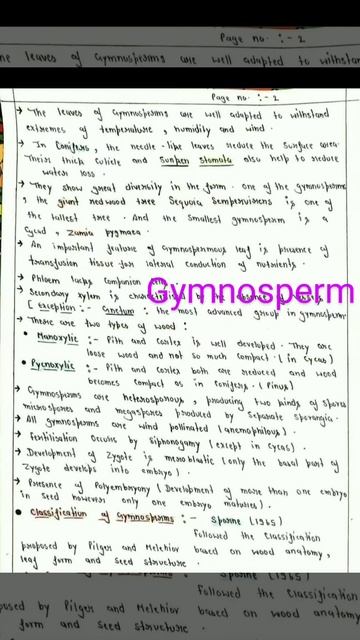 Page no. :- 2
ne leaves of Gymnosperms are well adapted to withstan
Page no. :- 2
→ The leaves of Gymnosperms are well adapted to withstand
extremes of temperature, humidity and wind.
→ In Conifers, the needle-like leaves reduce the surface area.
Their thick cuticle and sunken stomata also help to reduce
water loss.
→ They show great diversity in the form. One of the gymnosperms
, the giant redwood tree Sequoia sempervirens is one of
the tallest tree. And the smallest gymnosperm is a
Cycad, Zamia pygmaea.
→ An important feature of Gymnospermous leaf is presence of
transfusion tissue for lateral conduction of nutrients.
→ Phloem lacks companion
Gymnosperm
→ Secondary xylem is
[Exception :- Gnetum : the most advanced group in gymnosperm
→ There are two types of wood :
• Manoxylic :- Pith and Cortex is well developed. They are
loose wood and not so much compact. (in Cycas)
• Pycnoxylic :- Pith and Cortex both are reduced and wood
becomes compact as in Conifers. (Pinus)
→ Gymnosperms are heterosporous, producing two kinds of spores
microspores and megaspores produced by separate sporangia.
→ All gymnosperms are wind pollinated (anemophilous).
→ Fertilisation occurs by siphonogamy (except in Cycas).
→ Development of Zygote is meroblastic (only the basal part of
Zygote develops into embryo).
→ Presence of Polyembryony (Development of more than one embryo
in seed however only one embryo matures).
• Classification of Gymnosperms :- Sporne (1965)
Followed the Classification
proposed by Pilger and Melchior based on wood anatomy,
leaf form and seed structure.
Sporne (1965)
Followed the Classification
posed by Pilger and Melchior based on wood anatomy
form and seed structure.